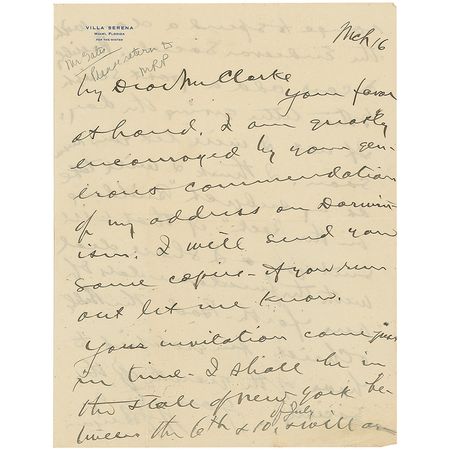 VILLA SERENA
MIAMI, FLORIDA
FOR THE WINTER
Mch 16
Mr Gates
Please return to
MRP
My Dear Mr Clarke
Your favor
at hand. I am greatly
encouraged by your gen-
erous commendation
of my address on Darwin-
ism. I will send you
some copies - if you run
out let me know.
Your invitation came just
in time. I shall be in
the state of New York be-
of July
tween the 6th & 10, & will